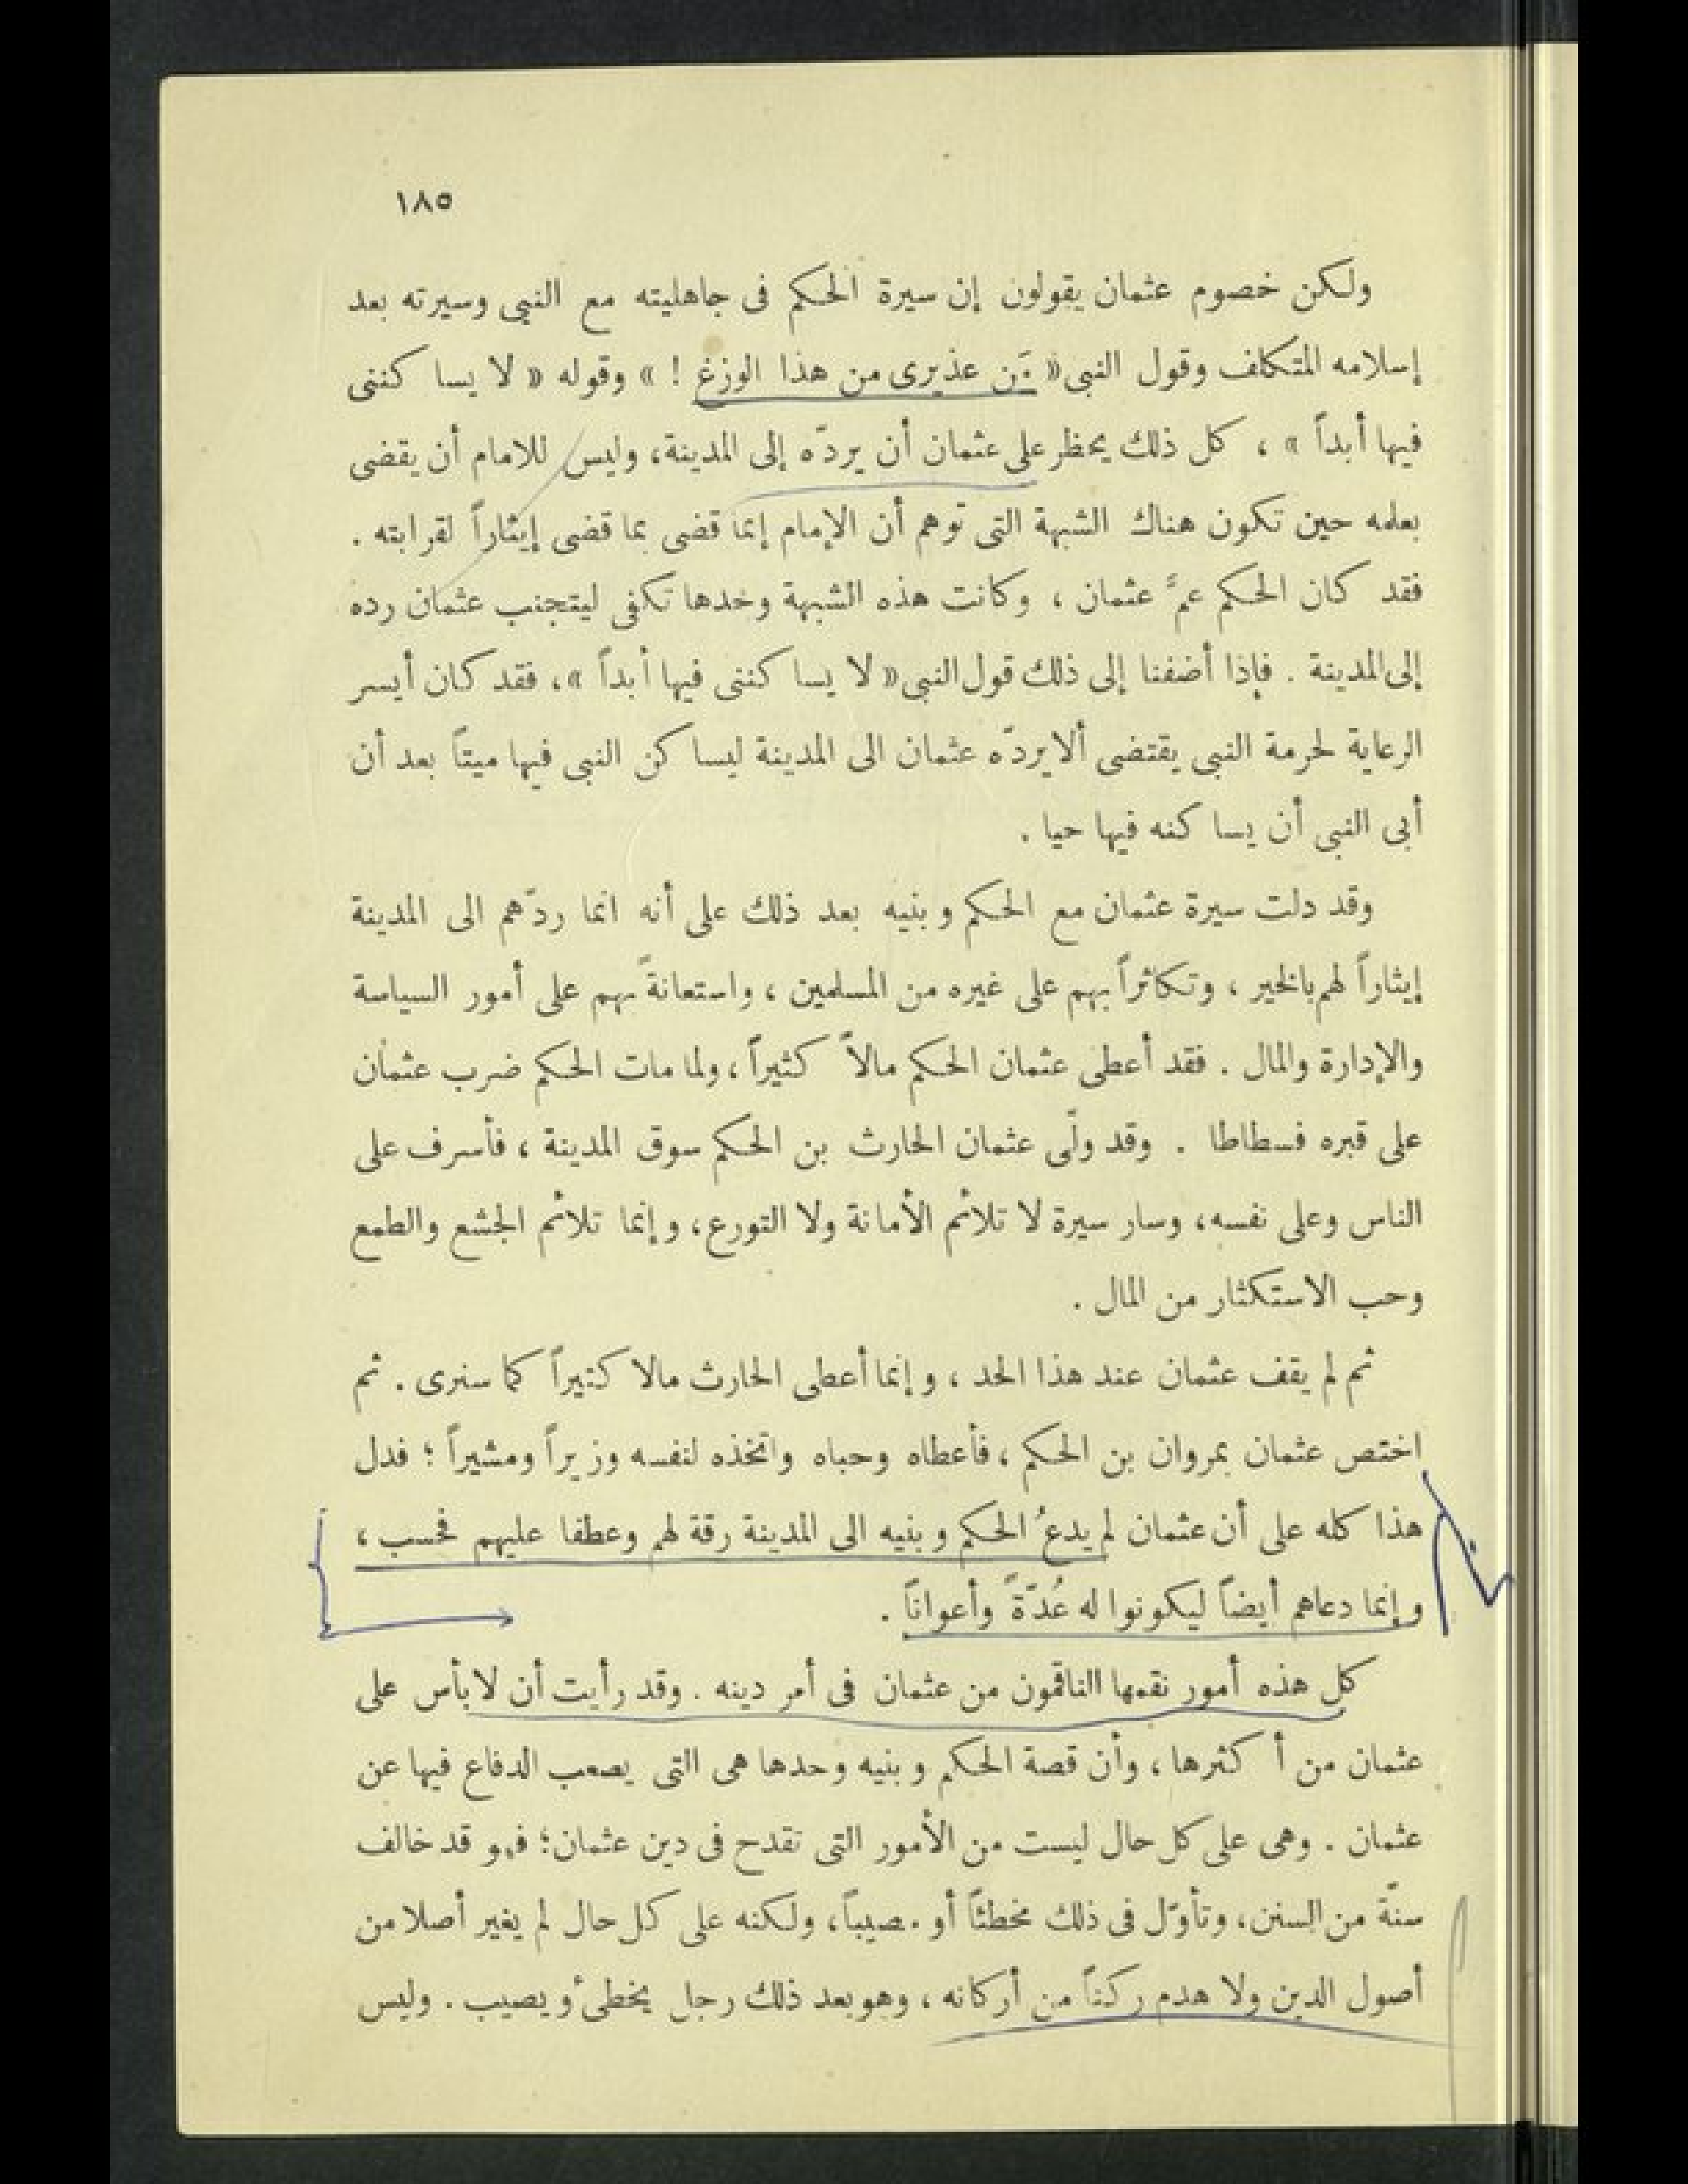 ١٨٥
ولكن خصوم عثمان يقولون إن سيرة الحكم فى جاهليته مع النبى وسيرته بعد
إسلامه المتكلف وقول النبى « مَن عذيرى من هذا الوزغ ! » وقوله « لا يساكننى
فيها أبداً » ، كل ذلك يحظر على عثمان أن يردّه إلى المدينة، وليس للامام أن يقضى
بعلمه حين تكون هناك الشبهة التى توهم أن الإمام إنما قضى بما قضى إيثاراً لقرابته .
فقد كان الحكم عمَّ عثمان ، وكانت هذه الشبهة وحدها تكفى ليتجنب عثمان رده
إلى المدينة . فإذا أضفنا إلى ذلك قول النبى « لا يساكننى فيها أبداً »، فقد كان أيسر
الرعاية لحرمة النبى يقتضى ألا يردّه عثمان الى المدينة ليساكن النبى فيها ميتاً بعد أن
أبى النبى أن يساكنه فيها حيا .
وقد دلت سيرة عثمان مع الحكم وبنيه بعد ذلك على أنه انما ردّهم الى المدينة
إيثاراً لهم بالخير ، وتكاثراً بهم على غيره من المسلمين ، واستعانةً بهم على أمور السياسة
والإدارة والمال . فقد أعطى عثمان الحكم مالاً كثيراً ، ولما مات الحكم ضرب عثمان
على قبره فسطاطا . وقد ولّى عثمان الحارث بن الحكم سوق المدينة ، فأسرف على
الناس وعلى نفسه، وسار سيرة لا تلائم الأمانة ولا التورع، وإنما تلائم الجشع والطمع
وحب الاستكثار من المال .
ثم لم يقف عثمان عند هذا الحد ، وإنما أعطى الحارث مالا كثيراً كما سنرى . ثم
اختص عثمان بمروان بن الحكم ، فأعطاه وحباه واتخذه لنفسه وزيراً ومشيراً ؛ فدل
هذا كله على أن عثمان لم يدعُ الحكم وبنيه الى المدينة رقة لهم وعطفا عليهم فحسب ،
وإنما دعاهم أيضاً ليكونوا له عُدّةً وأعواناً .
كل هذه أمور نقمها الناقمون من عثمان فى أمر دينه . وقد رأيت أن لا بأس على
عثمان من أكثرها ، وأن قصة الحكم وبنيه وحدها هى التى يصعب الدفاع فيها عن
عثمان . وهى على كل حال ليست من الأمور التى تقدح فى دين عثمان؛ فهو قد خالف
سنّة من السنن، وتأوّل فى ذلك مخطئاً أو مصيباً، ولكنه على كل حال لم يغير أصلا من
أصول الدين ولا هدم ركناً من أركانه ، وهو بعد ذلك رجل يخطئ ويصيب . وليس